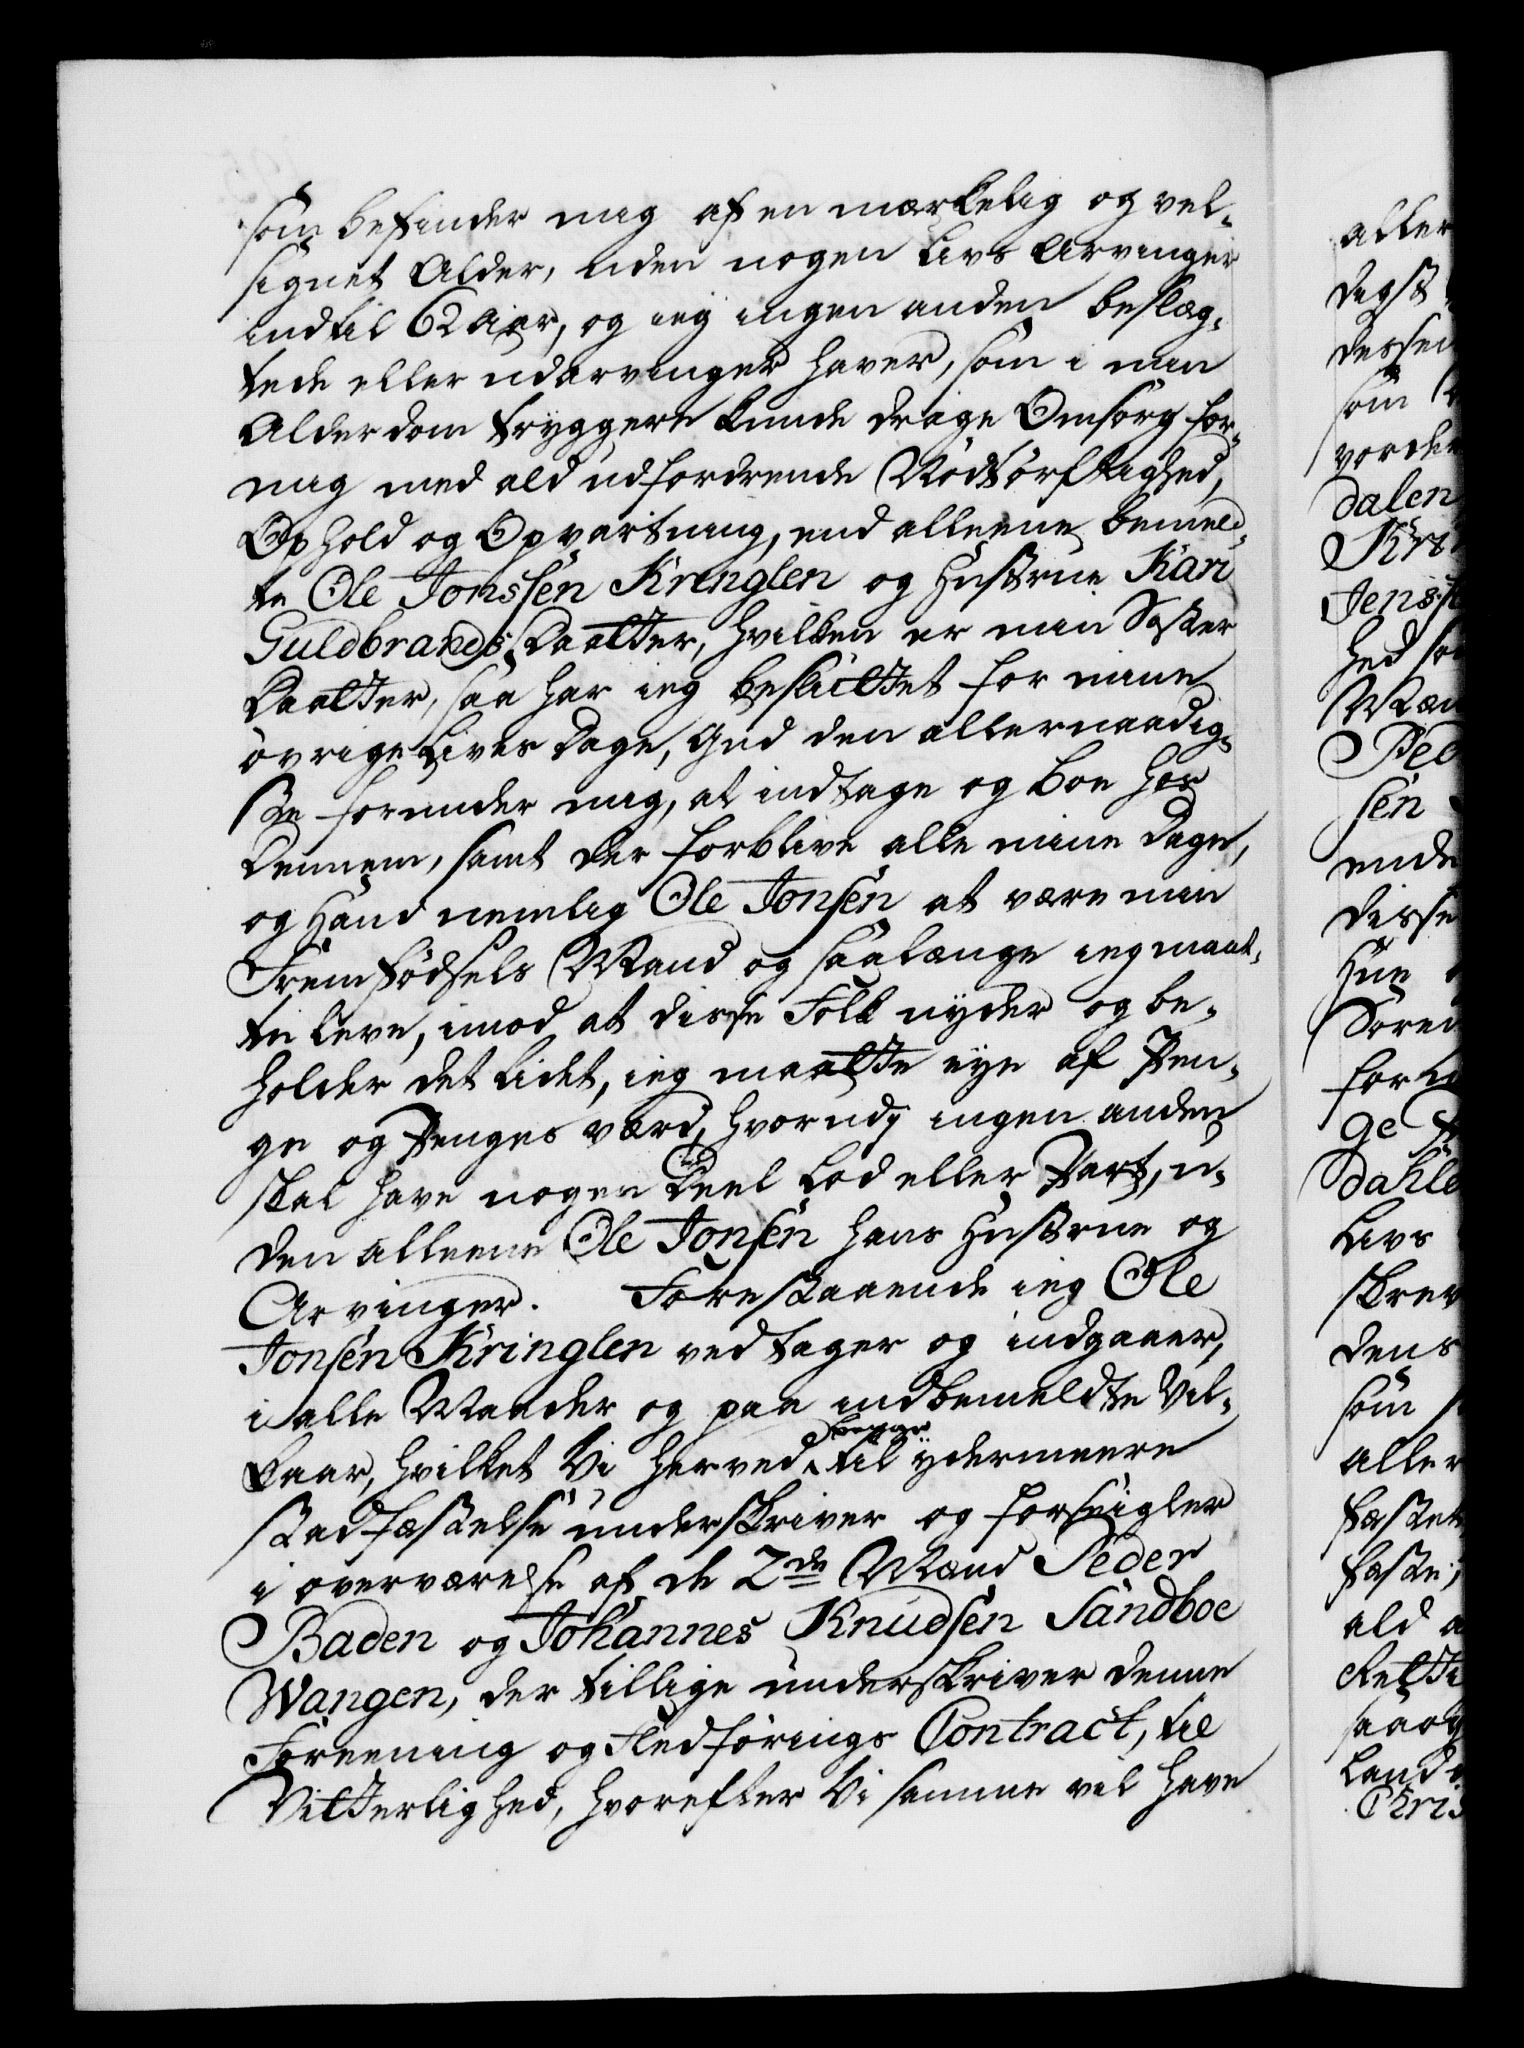 som befinder mig af en mærkelig og vel-
signet Alder, uden nogen Livs Arvinger
indtil 62 Aar, og ieg ingen anden beslæg-
tede eller udarvinger haver, som i min
Alderdom tryggere kunde drage Omsorg for
mig med ald udfordrende Nødtørftighed,
Ophold og Opvartning, end alleene bemeld-
te Ole Jonssen Kringlen og Hustrue Kari
Guldbrands Daatter, hvilken er min Søster
Daatter, saa har ieg besluttet for mine
øvrige Lives Dage, Gud den allernaadig-
ste forunder mig, at indtage og boe hos
Dennem, samt der forblive alle mine Dage,
og Hand nemlig Ole Jonsen at være min
Fremfødsels Mand og saalænge ieg maat-
te leve, imod at disse Folk nyder og be-
holder det lidet, ieg maatte eye af Pen-
ge og Penges værd, hvorudj ingen anden
skal have nogen Deel Lod eller Part, u-
den alleene Ole Jonsen hans Hustrue og
Arvinger. Forestaaende ieg Ole
Jonsen Kringlen vedtager og indgaaer,
i alle Maader og paa indbemeldte Vil-
kaar, hvilket Vi herved begge til ydermeere
stadfæstelse underskriver og forseigler
i overværelse af de 2de Mænd Peder
Baden og Johannes Knudsen Sandboe
Wangen, der tillige underskriver denne
Foreening og Fledførings Contract, til
Vitterlighed, hvorefter Vi samme vil have
aller
digst
dessen
som
vorder
dalen
Kri
Jens
hed
Mæn
Ped
sen
ende
disse
Hue
Søren
for
ge
dahle
Livs
skrev
dens
som
aller
fæstet
fæste,
ald
Rette
saaog
Land
Chris